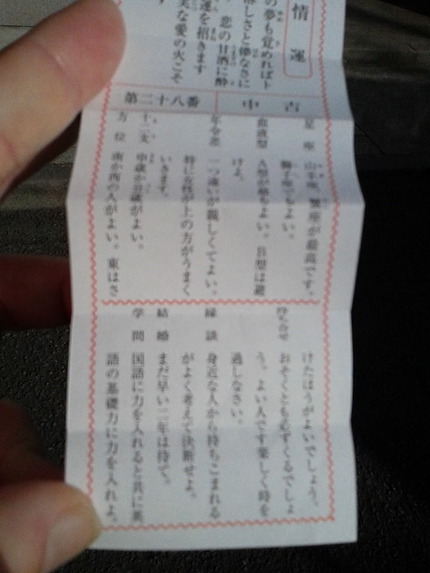 情運
の夢も覚めればト
しさと儚なさに
、恋の甘酒に酔
運を招きます
実な愛の火こそ
す
第二十八番
中吉
星座 山羊座、蟹座が最高です。
獅子座でもよい。
血液型 A型が最もよい。B型は避
けよ。
年令差 一つ違いが親しくてよい。
特に女性が上の方がうまく
いきます。
十二支 申歳か丑歳がよい。
方位 南か西の人がよい。東はさ
けたほうがよいでしょう。
待ち合せ おそくとも必ずくるでしょ
う。よい人です楽しく時を
過しなさい。
縁談 身近な人から持ちこまれる
がよく考えて決断せよ。
結婚 まだ早い二年は待て。
学問 国語に力を入れると共に英
語の基礎力に力を入れよ。